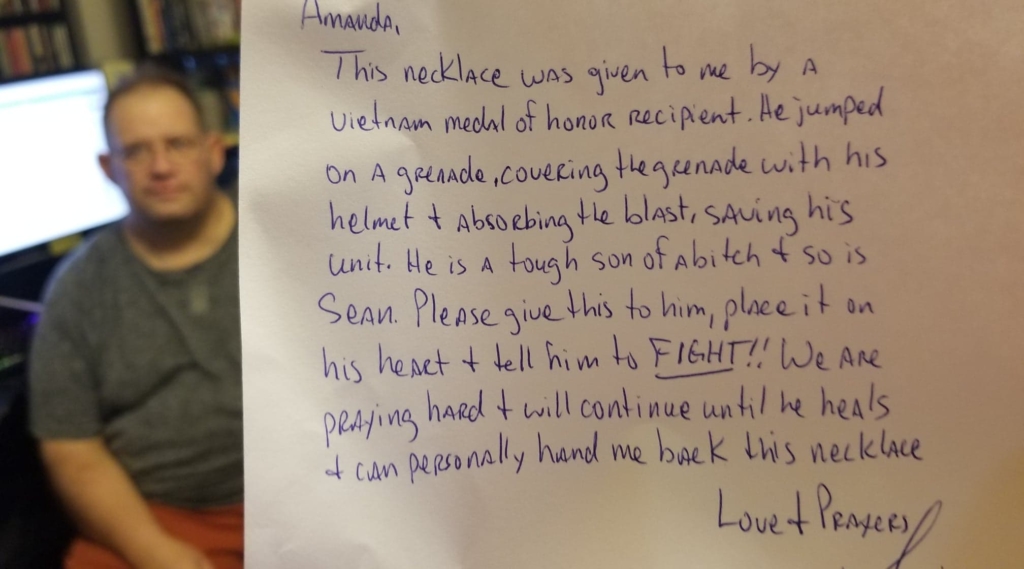 Amanda,
This necklace was given to me by a
Vietnam medal of honor recipient. He jumped
on a grenade, covering the grenade with his
helmet + absorbing the blast, saving his
unit. He is a tough son of a bitch + so is
Sean. Please give this to him, place it on
his heart + tell him to FIGHT!! We are
praying hard + will continue until he heals
+ can personally hand me back this necklace
Love + Prayers